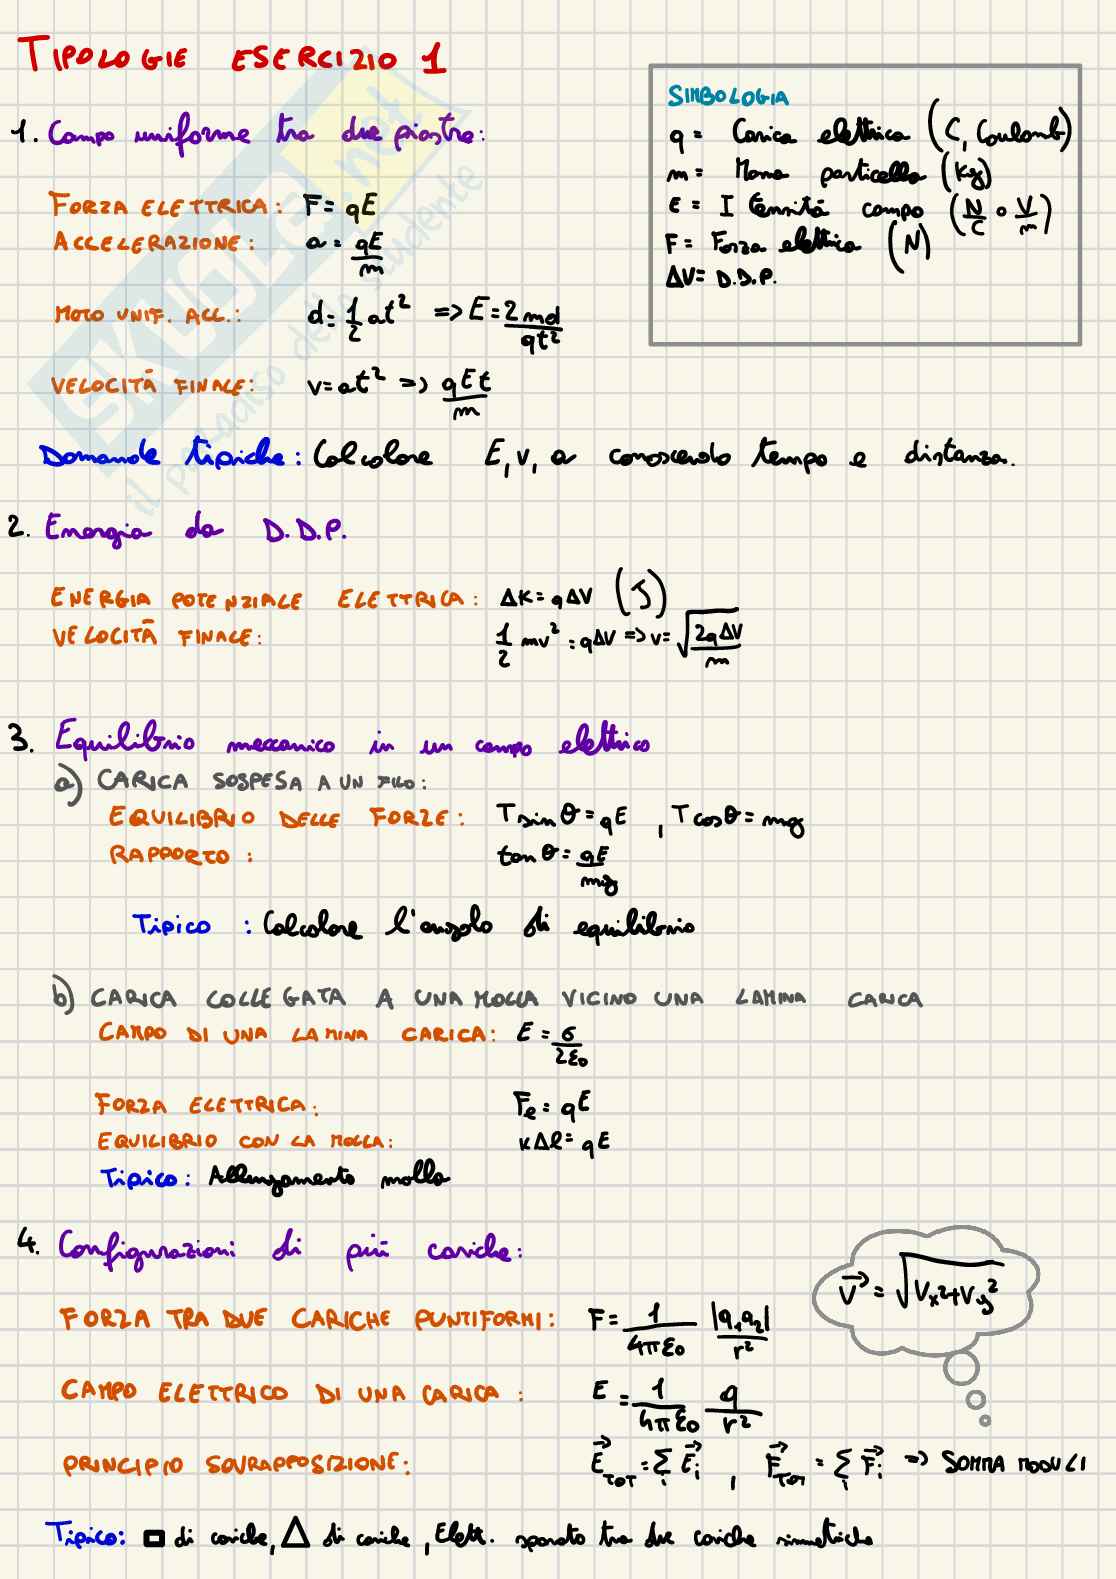 TIPOLOGIE ESERCIZIO 1
SIMBOLOGIA
q = Carica elettrica (C, Coulomb)
m = Massa particella (Kg)
E = Itensità campo (N/C o V/m)
F = Forza elettrica (N)
ΔV = D.D.P.
1. Campo uniforme tra due piastre:
FORZA ELETTRICA: F = qE
ACCELERAZIONE: a = qE/m
MOTO UNIF. ACC.: d = 1/2 at² => E = 2md/qt²
VELOCITÀ FINALE: v = at² => qEt/m
Domande tipiche: Calcolare E, v, a conoscendo tempo e distanza.
2. Energia da D.D.P.
ENERGIA POTENZIALE ELETTRICA: ΔK = qΔV (J)
VELOCITÀ FINALE: 1/2 mv² = qΔV => v = √(2qΔV/m)
3. Equilibrio meccanico in un campo elettrico
a) CARICA SOSPESA A UN FILO:
EQUILIBRIO DELLE FORZE: T sin θ = qE , T cos θ = mg
RAPPORTO: tan θ = qE/mg
TIPICO: Calcolare l'angolo di equilibrio
b) CARICA COLLEGATA A UNA MOLLA VICINO UNA LAMINA CARICA
CAMPO DI UNA LAMINA CARICA: E = σ/2ε₀
FORZA ELETTRICA: Fe = qE
EQUILIBRIO CON LA MOLLA: KΔl = qE
Tipico: Allungamento molla
4. Configurazioni di più cariche:
FORZA TRA DUE CARICHE PUNTIFORMI: F = 1/4πε₀ |q₁q₂|/r²
V⃗ = √(Vx²+Vy²)
CAMPO ELETTRICO DI UNA CARICA: E = 1/4πε₀ q/r²
PRINCIPIO SOVRAPPOSIZIONE: E⃗TOT = Σi E⃗i , F⃗TOT = Σi F⃗i => SOMMA MODULI
Tipico: □ di cariche, △ di cariche, Elett. sparato tra due cariche simmetriche
SKUOLA.net
il paradiso dello studente